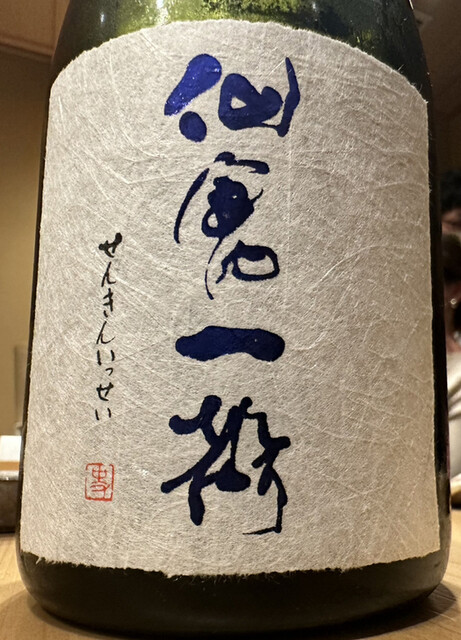 仙禽一聲
せんきんいっせい